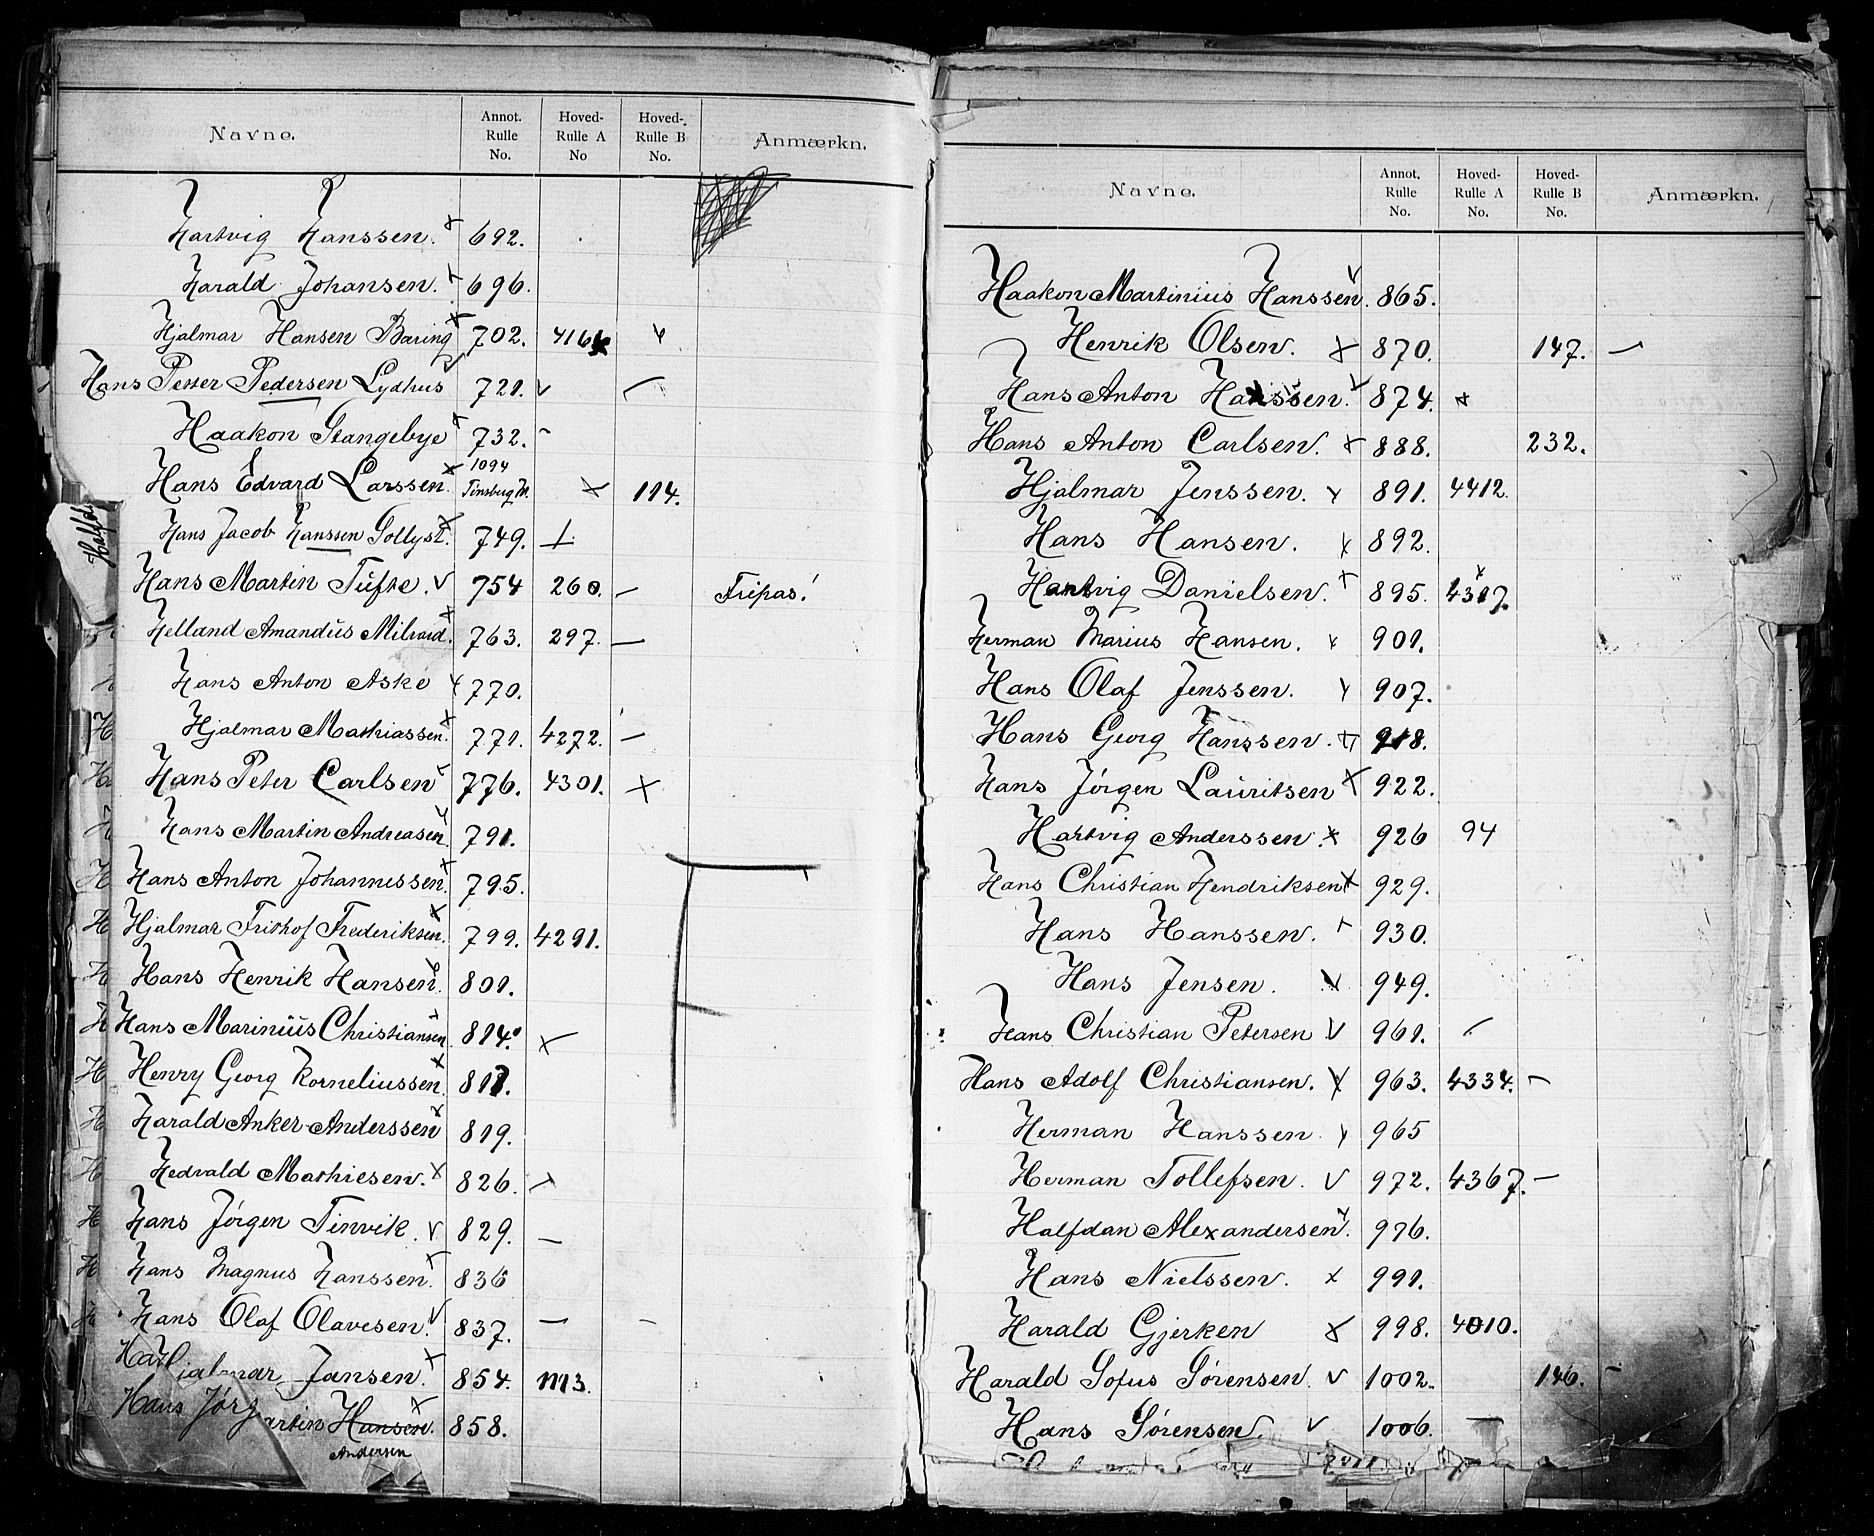 Navne. Annot. Rulle No. Hoved-Rulle A No Hoved-Rulle B No. Anmærkn.
Hartvig Hanssen. x 692.
Harald Johansen. x 696.
Hjalmar Hansen Baring x 702. 4166
Hans Petter Pedersen Lydhus v 721. v
Haakon Stangebye x 732. -
1094
Hans Edvard Larssen x Tinsberg M. x 114.
Hans Jacob Hanssen Gollyst. x 749.
Hans Martin Tufte. v 754 260. — Fripas!
Helland Amandus Milvard. x 763. 297. —
Hans Anton Aske x 770.
Hjalmar Mathiassen. x 771. 4272. —
Hans Peter Carlsen x 776. 4301. x
Hans Martin Andreasen 791.
Hans Anton Johannessen. x 795.
Hjalmar Frithof Frederiksen. x 799. 4291.
Hans Henrik Hansen. 801.
Hans Marinius Christiansen x 814. x
Henry Georg Korneliussen x 817.
Harald Anker Anderssen x 819.
Hedvald Mathiesen. x 826. x
Hans Jørgen Tinvik. v 829. —
Hans Magnus Hanssen. x 836
Hans Olaf Olavesen. v 837. — -
Hjalmar Jansen. x 854. 1113.
Hans Jørg
artin Hansen. x 858.
Andersen
Halfd
Navne. Annot. Rulle No. Hoved-Rulle A No. Hoved-Rulle B No. Anmærkn.
Haakon Martinius Hanssen. v 865.
Henrik Olsen. x 870. 147. —
Hans Anton Hanssen. v 874. x
Hans Anton Carlsen. x 888. 232.
Hjalmar Jenssen. x 891. 4412.
Hans Hansen. x 892.
Hartvig Danielsen. x 895. 4317. x
Herman Marius Hansen. x 901.
Hans Olaf Jenssen. x 907.
Hans Georg Hanssen. x 918.
Hans Jørgen Lauritsen x 922.
Hartvig Anderssen. x 926 94
Hans Christian Hendriksen x 929.
Hans Hanssen. x 930.
Hans Jensen. x 949.
Hans Christian Petersen v 961.
Hans Adolf Christiansen. x 963. 4334. -
Herman Hanssen. x 965
Herman Tollefsen. v 972. 4367. —
Halfdan Alexandersen. x 976.
Hans Nielssen. x 991.
Harald Gjerken x 998. 4010.
Harald Sofus Sørensen. v 1002. 146. -
Hans Sørensen. v 1006. —